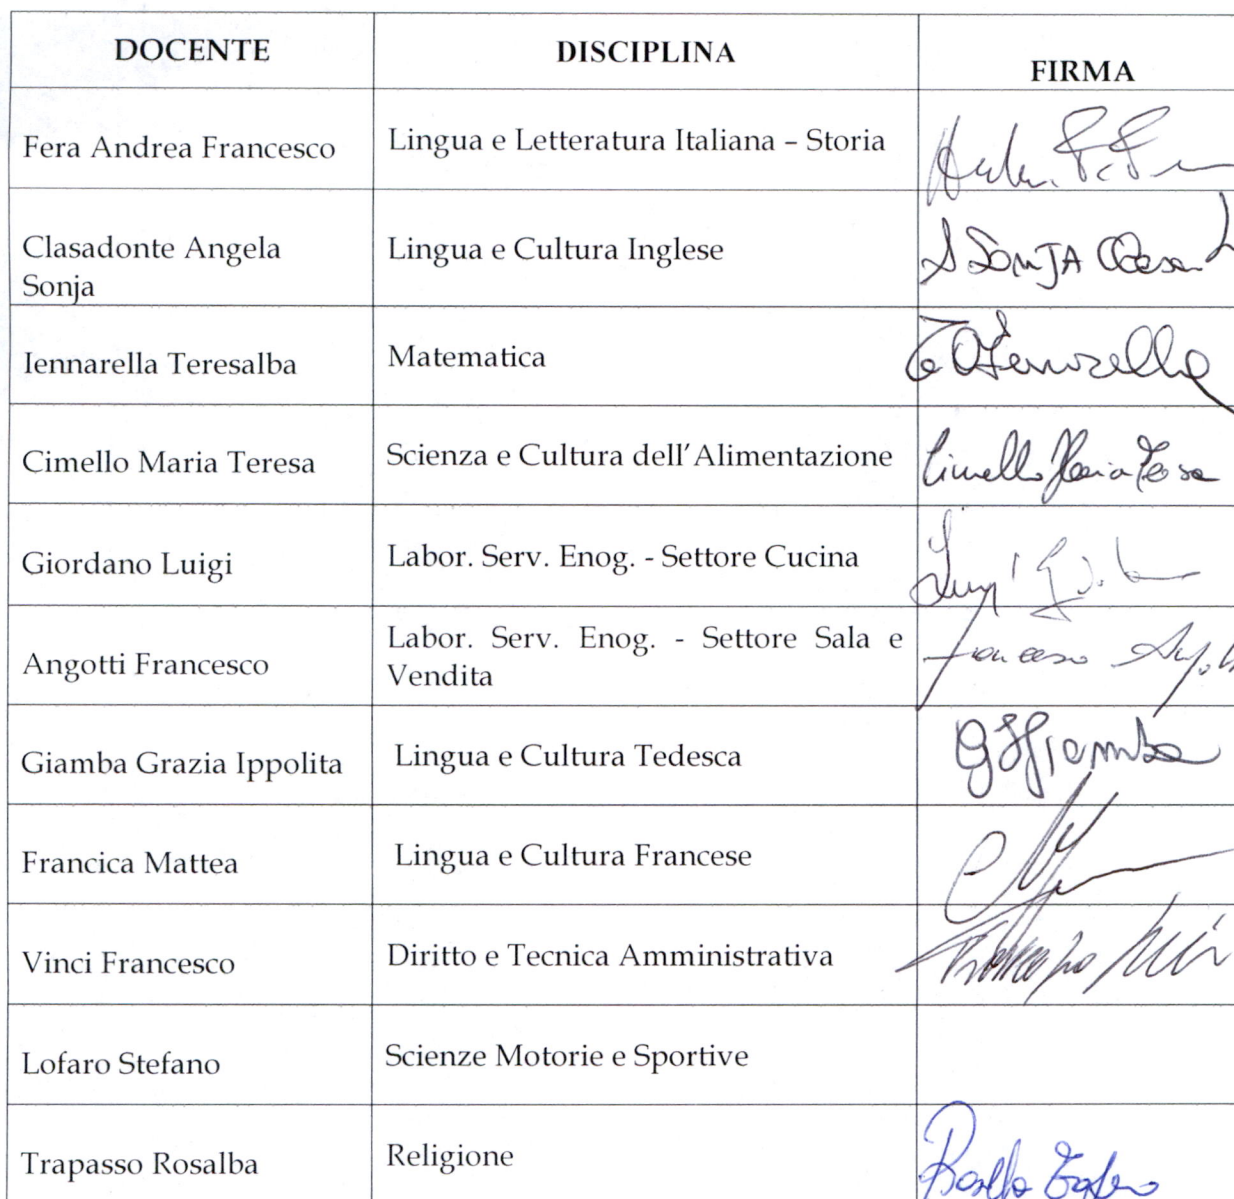 DOCENTE DISCIPLINA FIRMA
Fera Andrea Francesco Lingua e Letteratura Italiana – Storia
Clasadonte Angela Lingua e Cultura Inglese Sonja
Sonja
Iennarella Teresalba Matematica
Cimello Maria Teresa Scienza e Cultura dell'Alimentazione Cimello Maria Teresa
Giordano Luigi Labor. Serv. Enog. - Settore Cucina Luigi
Angotti Francesco Labor. Serv. Enog. - Settore Sala e Francesco
Vendita
Giamba Grazia Ippolita Lingua e Cultura Tedesca Giamba
Francica Mattea Lingua e Cultura Francese
Vinci Francesco Diritto e Tecnica Amministrativa Francesco Vinci
Lofaro Stefano Scienze Motorie e Sportive
Trapasso Rosalba Religione